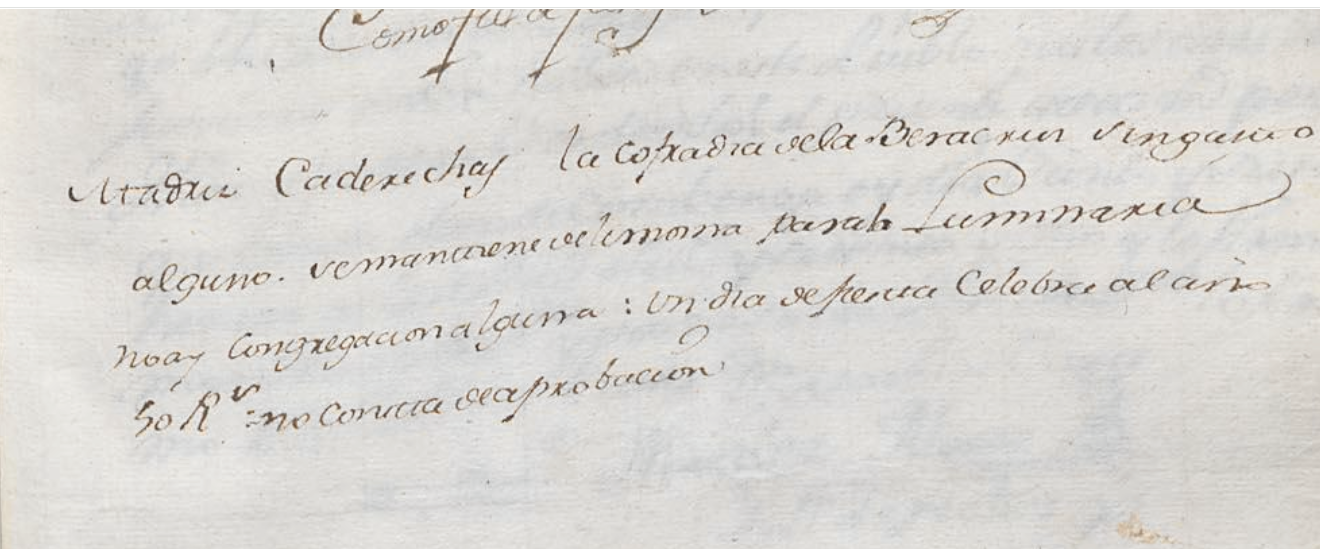 Como
Madrid Caderechas la Cofradia dela Beracruz sin gasto
alguno. se mantiene de limosna para la Luminaria
no ay Congregacion alguna : Un dia de fiesta Celebra al año
50 Rs = no Consta de aprobacion